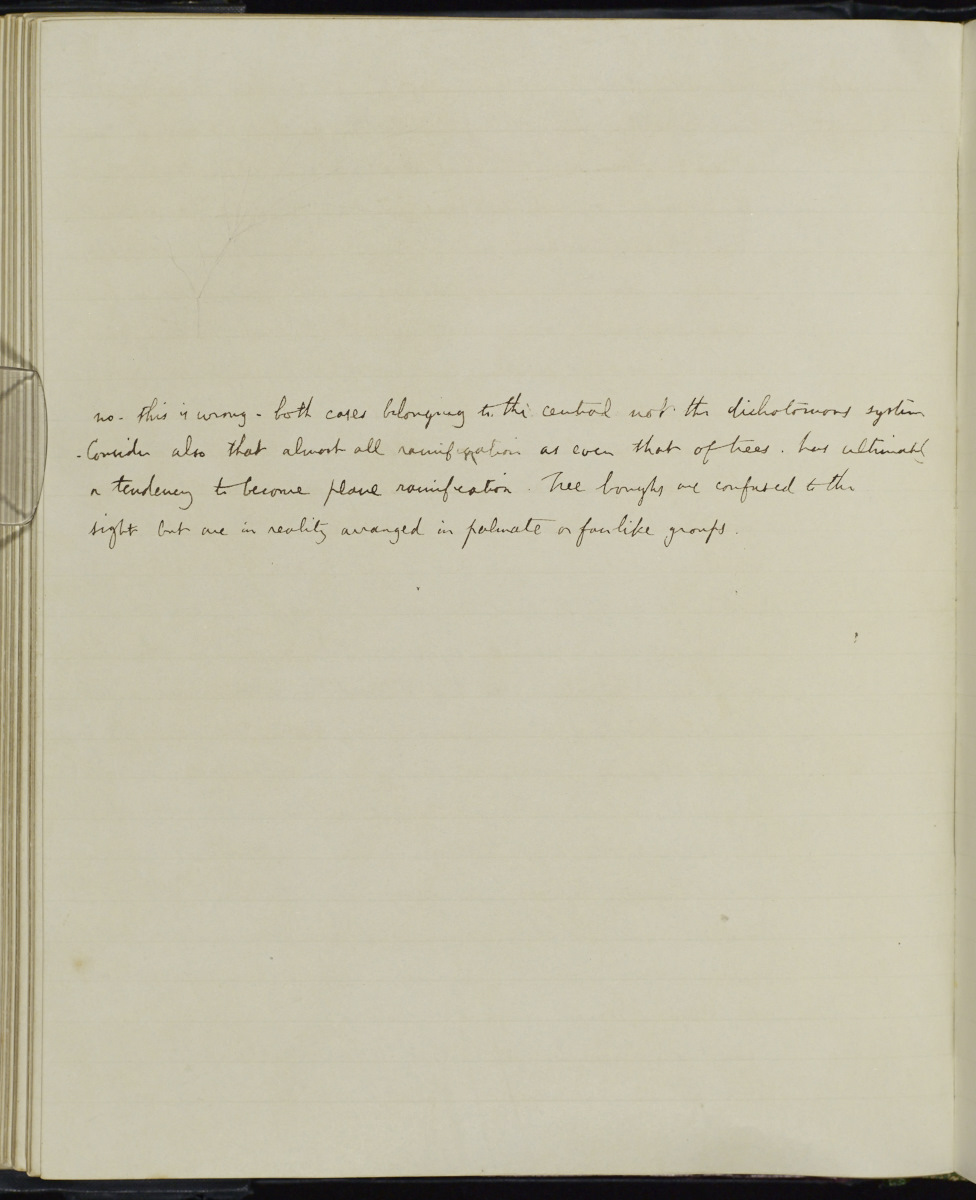 no - this is wrong - both cases belonging to the central not the dichotomous system
- Consider also that almost all ramification as even that of trees . has ultimately
a tendency to become plane ramification . Tree boughs are confused to the
sight but are in reality arranged in palmate or fanlike groups .